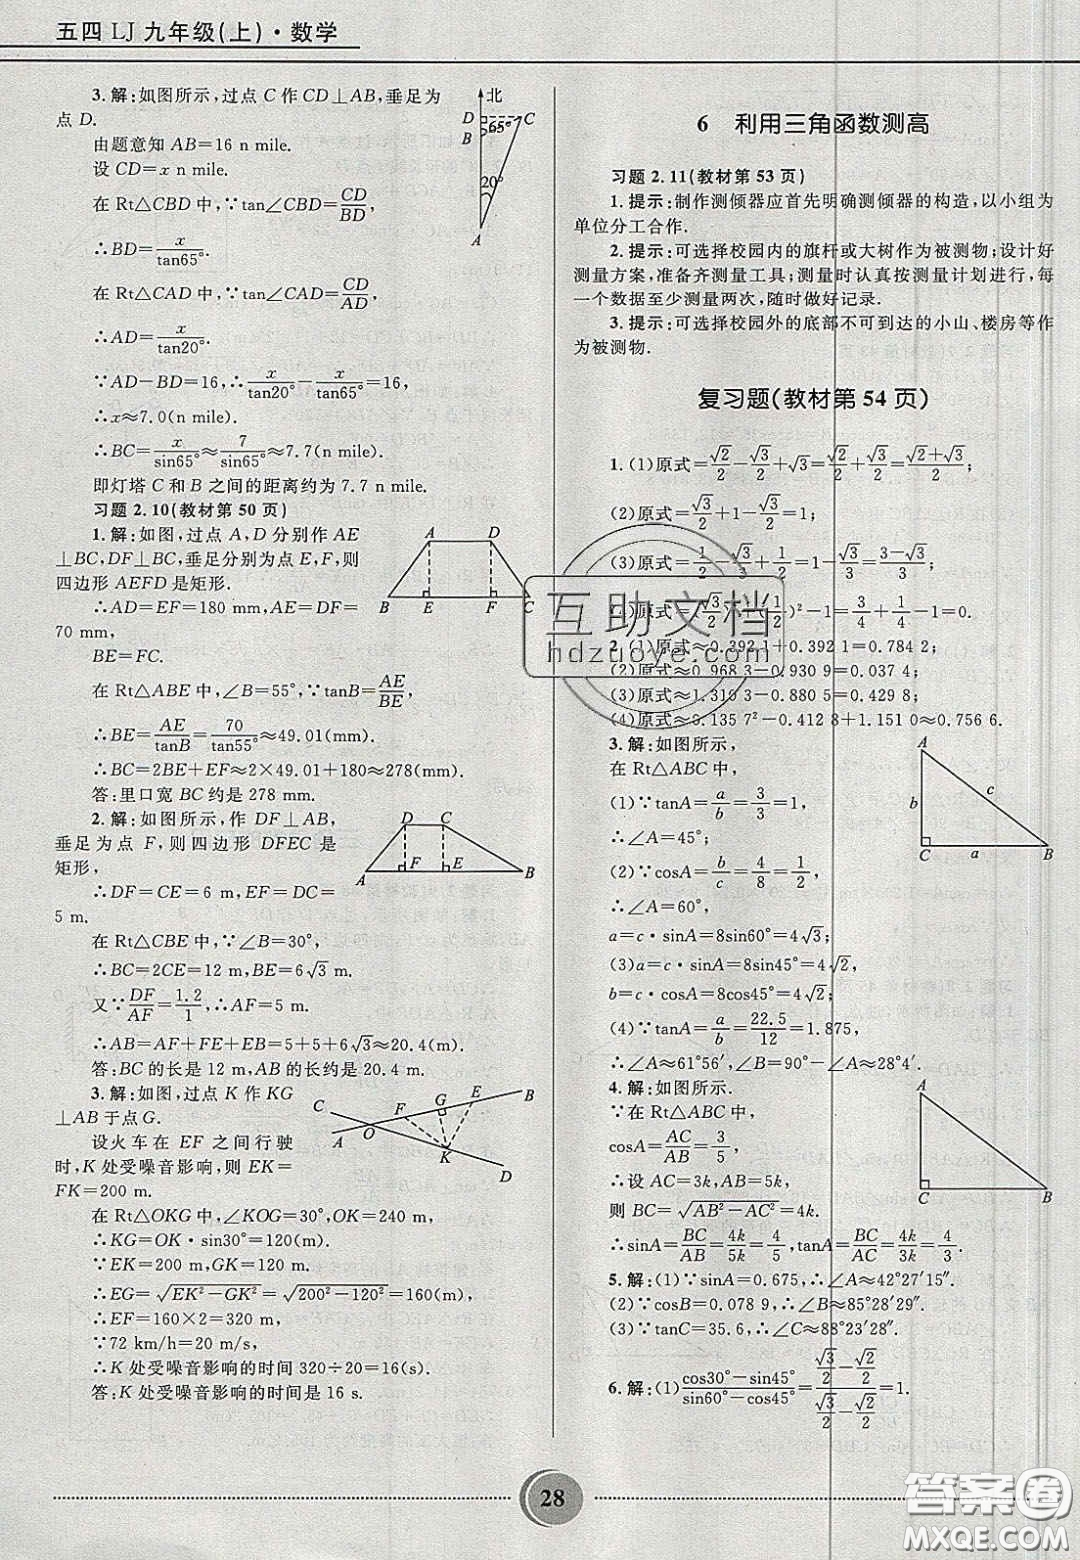 五四 LJ 九年级(上)·数学
3. 解:如图所示,过点 C 作 CD⊥AB,垂足为
点 D.
由题意知 AB=16 n mile.
设 CD=x n mile.
在 Rt△CBD 中,∵tan∠CBD=CD/BD,
∴BD=x/tan65°.
在 Rt△CAD 中,∵tan∠CAD=CD/AD,
∴AD=x/tan20°.
∵AD-BD=16,∴x/tan20°-x/tan65°=16,
∴x≈7.0(n mile).
∴BC=x/sin65°≈7/sin65°≈7.7(n mile).
即灯塔 C 和 B 之间的距离约为 7.7 n mile.
北
D
C
B
65°
20°
A
习题 2.10(教材第 50 页)
1. 解:如图,过点 A,D 分别作 AE
⊥BC,DF⊥BC,垂足分别为点 E,F,则
四边形 AEFD 是矩形.
∴AD=EF=180 mm,AE=DF=
70 mm,
BE=FC.
在 Rt△ABE 中,∠B=55°,∵tanB=AE/BE,
∴BE=AE/tanB=70/tan55°≈49.01(mm).
∴BC=2BE+EF≈2×49.01+180≈278(mm).
答:里口宽 BC 约是 278 mm.
A D
B E F C
2. 解:如图所示,作 DF⊥AB,
垂足为点 F,则四边形 DFEC 是
矩形,
∴DF=CE=6 m,EF=DC=
5 m.
在 Rt△CBE 中,∵∠B=30°,
∴BC=2CE=12 m,BE=6√3 m.
又∵DF/AF=1.2/1,∴AF=5 m.
∴AB=AF+FE+EB=5+5+6√3≈20.4(m).
答:BC 的长是 12 m,AB 的长约是 20.4 m.
D C
A F E B
3. 解:如图,过点 K 作 KG
⊥AB 于点 G.
设火车在 EF 之间行驶
时,K 处受噪音影响,则 EK=
FK=200 m.
在 Rt△OKG 中,∠KOG=30°,OK=240 m,
∴KG=OK·sin30°=120(m).
∵EK=200 m,GK=120 m.
∴EG=√(EK²-GK²)=√(200²-120²)=160(m).
∴EF=160×2=320 m,
∵72 km/h=20 m/s,
∴K 处受噪音影响的时间 320÷20=16(s).
答:K 处受噪音影响的时间是 16 s.
C
F G E B
A O
K
D
6 利用三角函数测高
习题 2.11(教材第 53 页)
1. 提示:制作测倾器应首先明确测倾器的构造,以小组为
单位分工合作.
2. 提示:可选择校园内的旗杆或大树作为被测物;设计好
测量方案,准备齐测量工具;测量时认真按测量计划进行,每
一个数据至少测量两次,随时做好记录.
3. 提示:可选择校园外的底部不可到达的小山、楼房等作
为被测物.
复习题(教材第 54 页)
1. (1)原式=√2/2-√3/2+√3=√2/2+√3/2=(√2+√3)/2;
(2)原式=√3/2+1-√3/2=1;
(3)原式=1/2-√3/3+1/2=1-√3/3=(3-√3)/3;
(4)原式=(√3/2)²+(1/2)²-1=3/4+1/4-1=0.
2. (1)原式≈0.392 1+0.392 1=0.784 2;
(2)原式≈0.968 3-0.930 9=0.037 4;
(3)原式≈1.310 3-0.880 5=0.429 8;
(4)原式≈0.135 7²-0.412 8+1.151 0≈0.756 6.
3. 解:如图所示,
在 Rt△ABC 中,
(1)∵tanA=a/b=3/3=1,
∴∠A=45°;
(2)∵cosA=b/c=4/8=1/2,
∴∠A=60°,
a=c·sinA=8sin60°=4√3;
(3)a=c·sinA=8sin45°=4√2;
b=c·cosA=8cos45°=4√2;
(4)∵tanA=a/b=22.5/12=1.875,
∴∠A≈61°56′,∠B=90°-∠A≈28°4′.
A
b c
C a B
4. 解:如图所示.
∵在 Rt△ABC 中,
cosA=AC/AB=3/5,
∴设 AC=3k,AB=5k,
则 BC=√(AB²-AC²)=4k.
∴sinA=BC/AB=4k/5k=4/5,tanA=BC/AC=4k/3k=4/3.
A
C B
5. 解:(1)∵sinA=0.675,∴∠A≈42°27′15″.
(2)∵cosB=0.078 9,∴∠B≈85°28′29″.
(3)∵tanC=35.6,∴∠C≈88°23′28″.
6. 解:(1)(cos30°-sin45°)/(sin60°-cos45°)=(√3/2-√2/2)/(√3/2-√2/2)=1.
互助文档
hdzuoye.com
28
答案圈
MXQE.COM